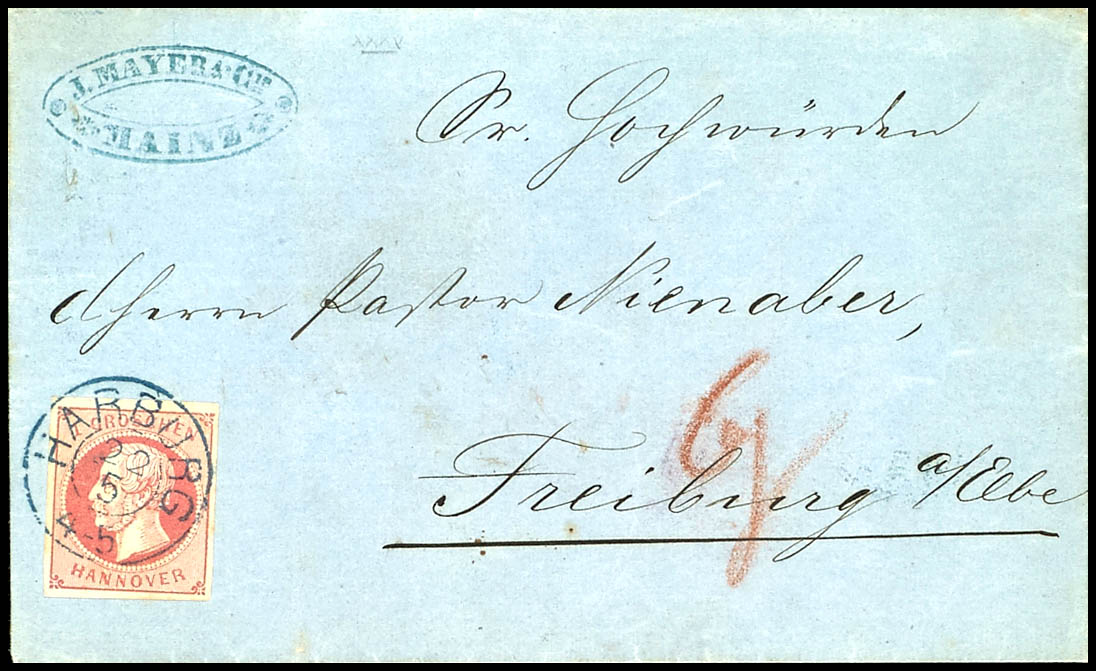 J. MAYER & CIE
MAINZ
Sr. Hochwürden
Herrn Pastor Nienaber,
Freiburg a/Elbe
HARBURG
22
5
4-5
GROSCHEN
HANNOVER